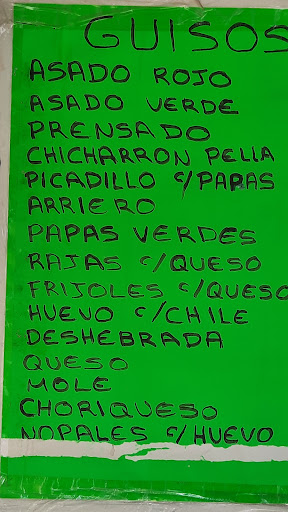 GUISOS
ASADO ROJO
ASADO VERDE
PRENSADO
CHICHARRON PELLA
PICADILLO C/PAPAS
ARRIERO
PAPAS VERDES
RAJAS C/QUESO
FRIJOLES C/QUESO
HUEVO C/CHILE
DESHEBRADA
QUESO
MOLE
CHORIQUESO
NOPALES C/HUEVO